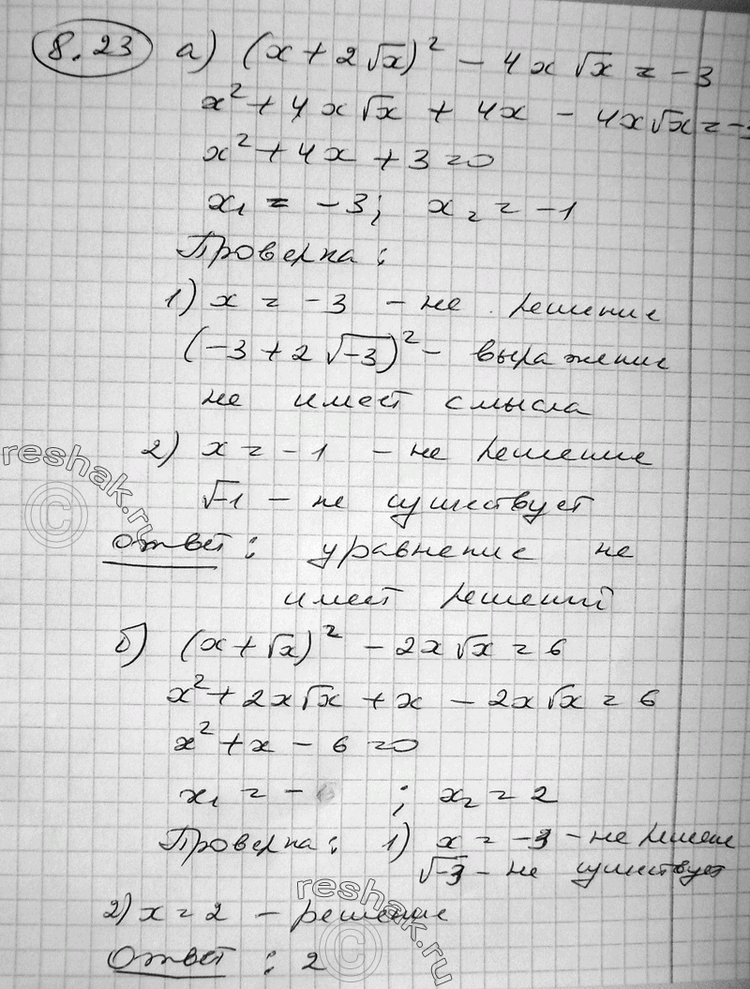 8.23 а) (x + 2√x)² - 4x√x = -3
x² + 4x√x + 4x - 4x√x = -3
x² + 4x + 3 = 0
x₁ = -3; x₂ = -1
Проверка:
1) x = -3 - не решение
(-3 + 2√-3)² - выражение
не имеет смысла
2) x = -1 - не решение
√-1 - не существует
Ответ: уравнение не
имеет решений
б) (x + √x)² - 2x√x = 6
x² + 2x√x + x - 2x√x = 6
x² + x - 6 = 0
x₁ = - ; x₂ = 2
Проверка: 1) x = -3 - не решение
√-3 - не существует
2) x = 2 - решение
Ответ: 2
reshak.ru
©
reshak.ru
©